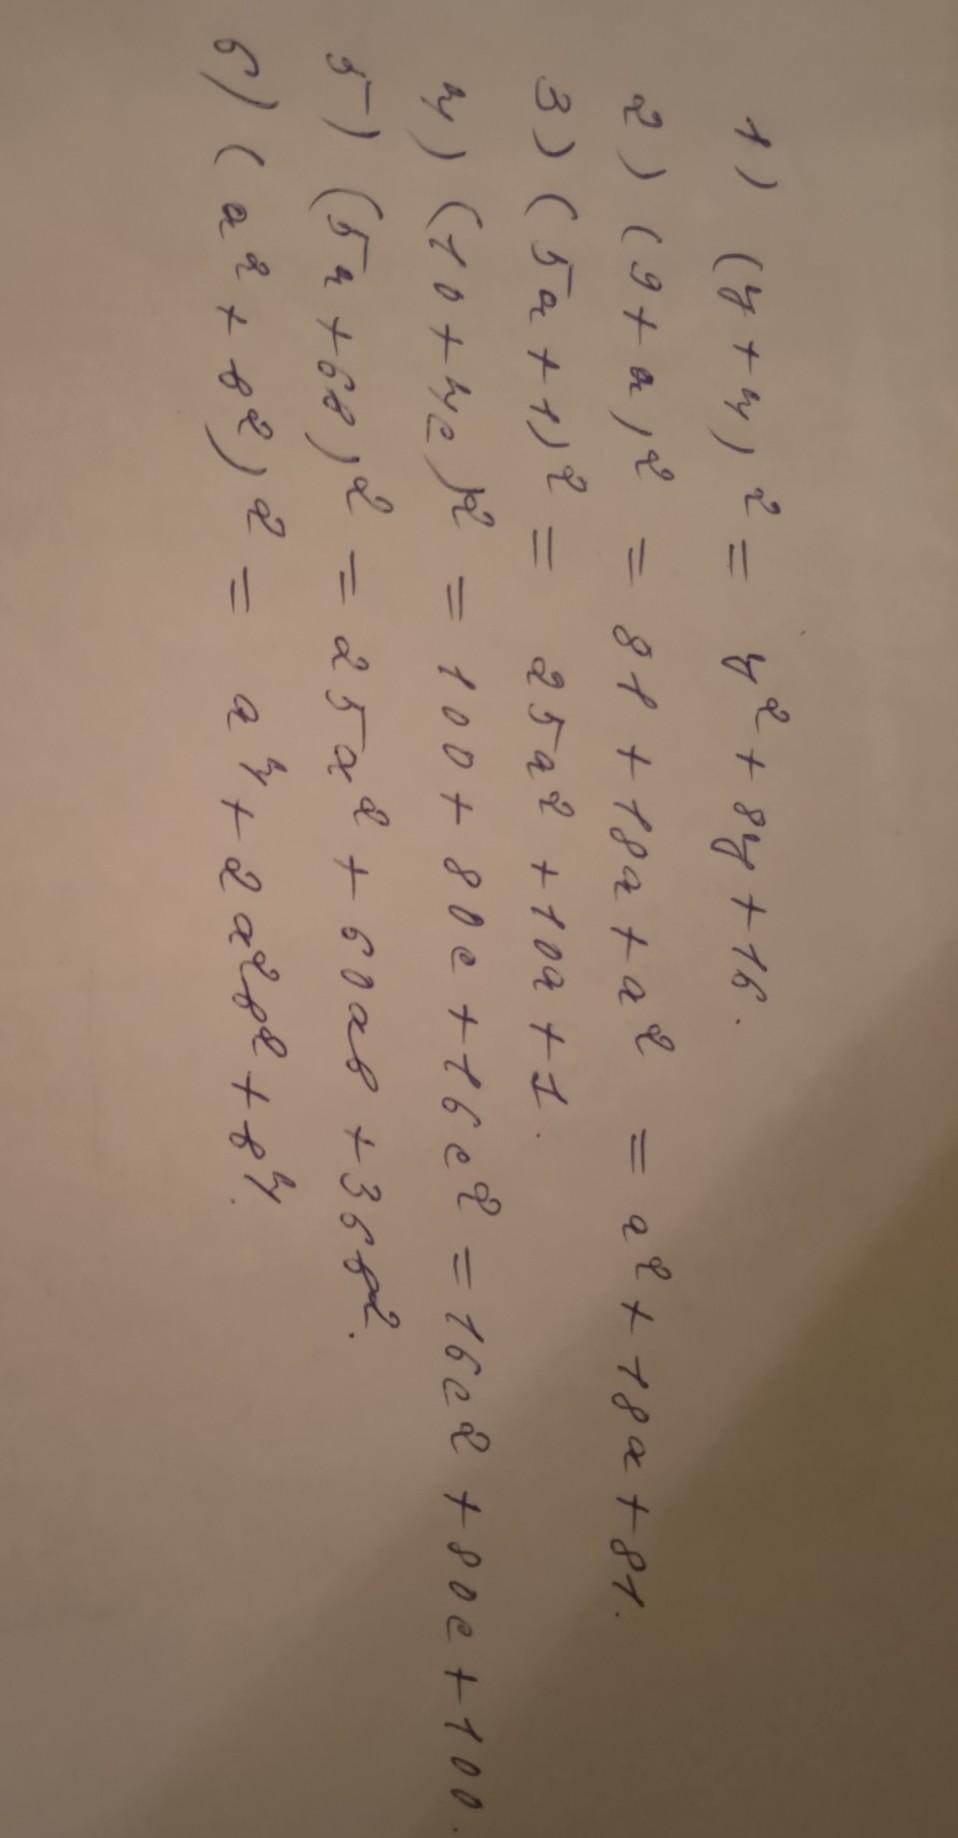 1) (y+4)² = y²+8y+16.
2) (9+a)² = 81+18a+a² = a²+18a+81.
3) (5a+1)² = 25a²+10a+1.
4) (10+4c)² = 100+80c+16c² = 16c²+80c+100.
5) (5a+6в)² = 25a²+60aв+36в².
6) (a²+в²)² = a⁴+2a²в²+в⁴.